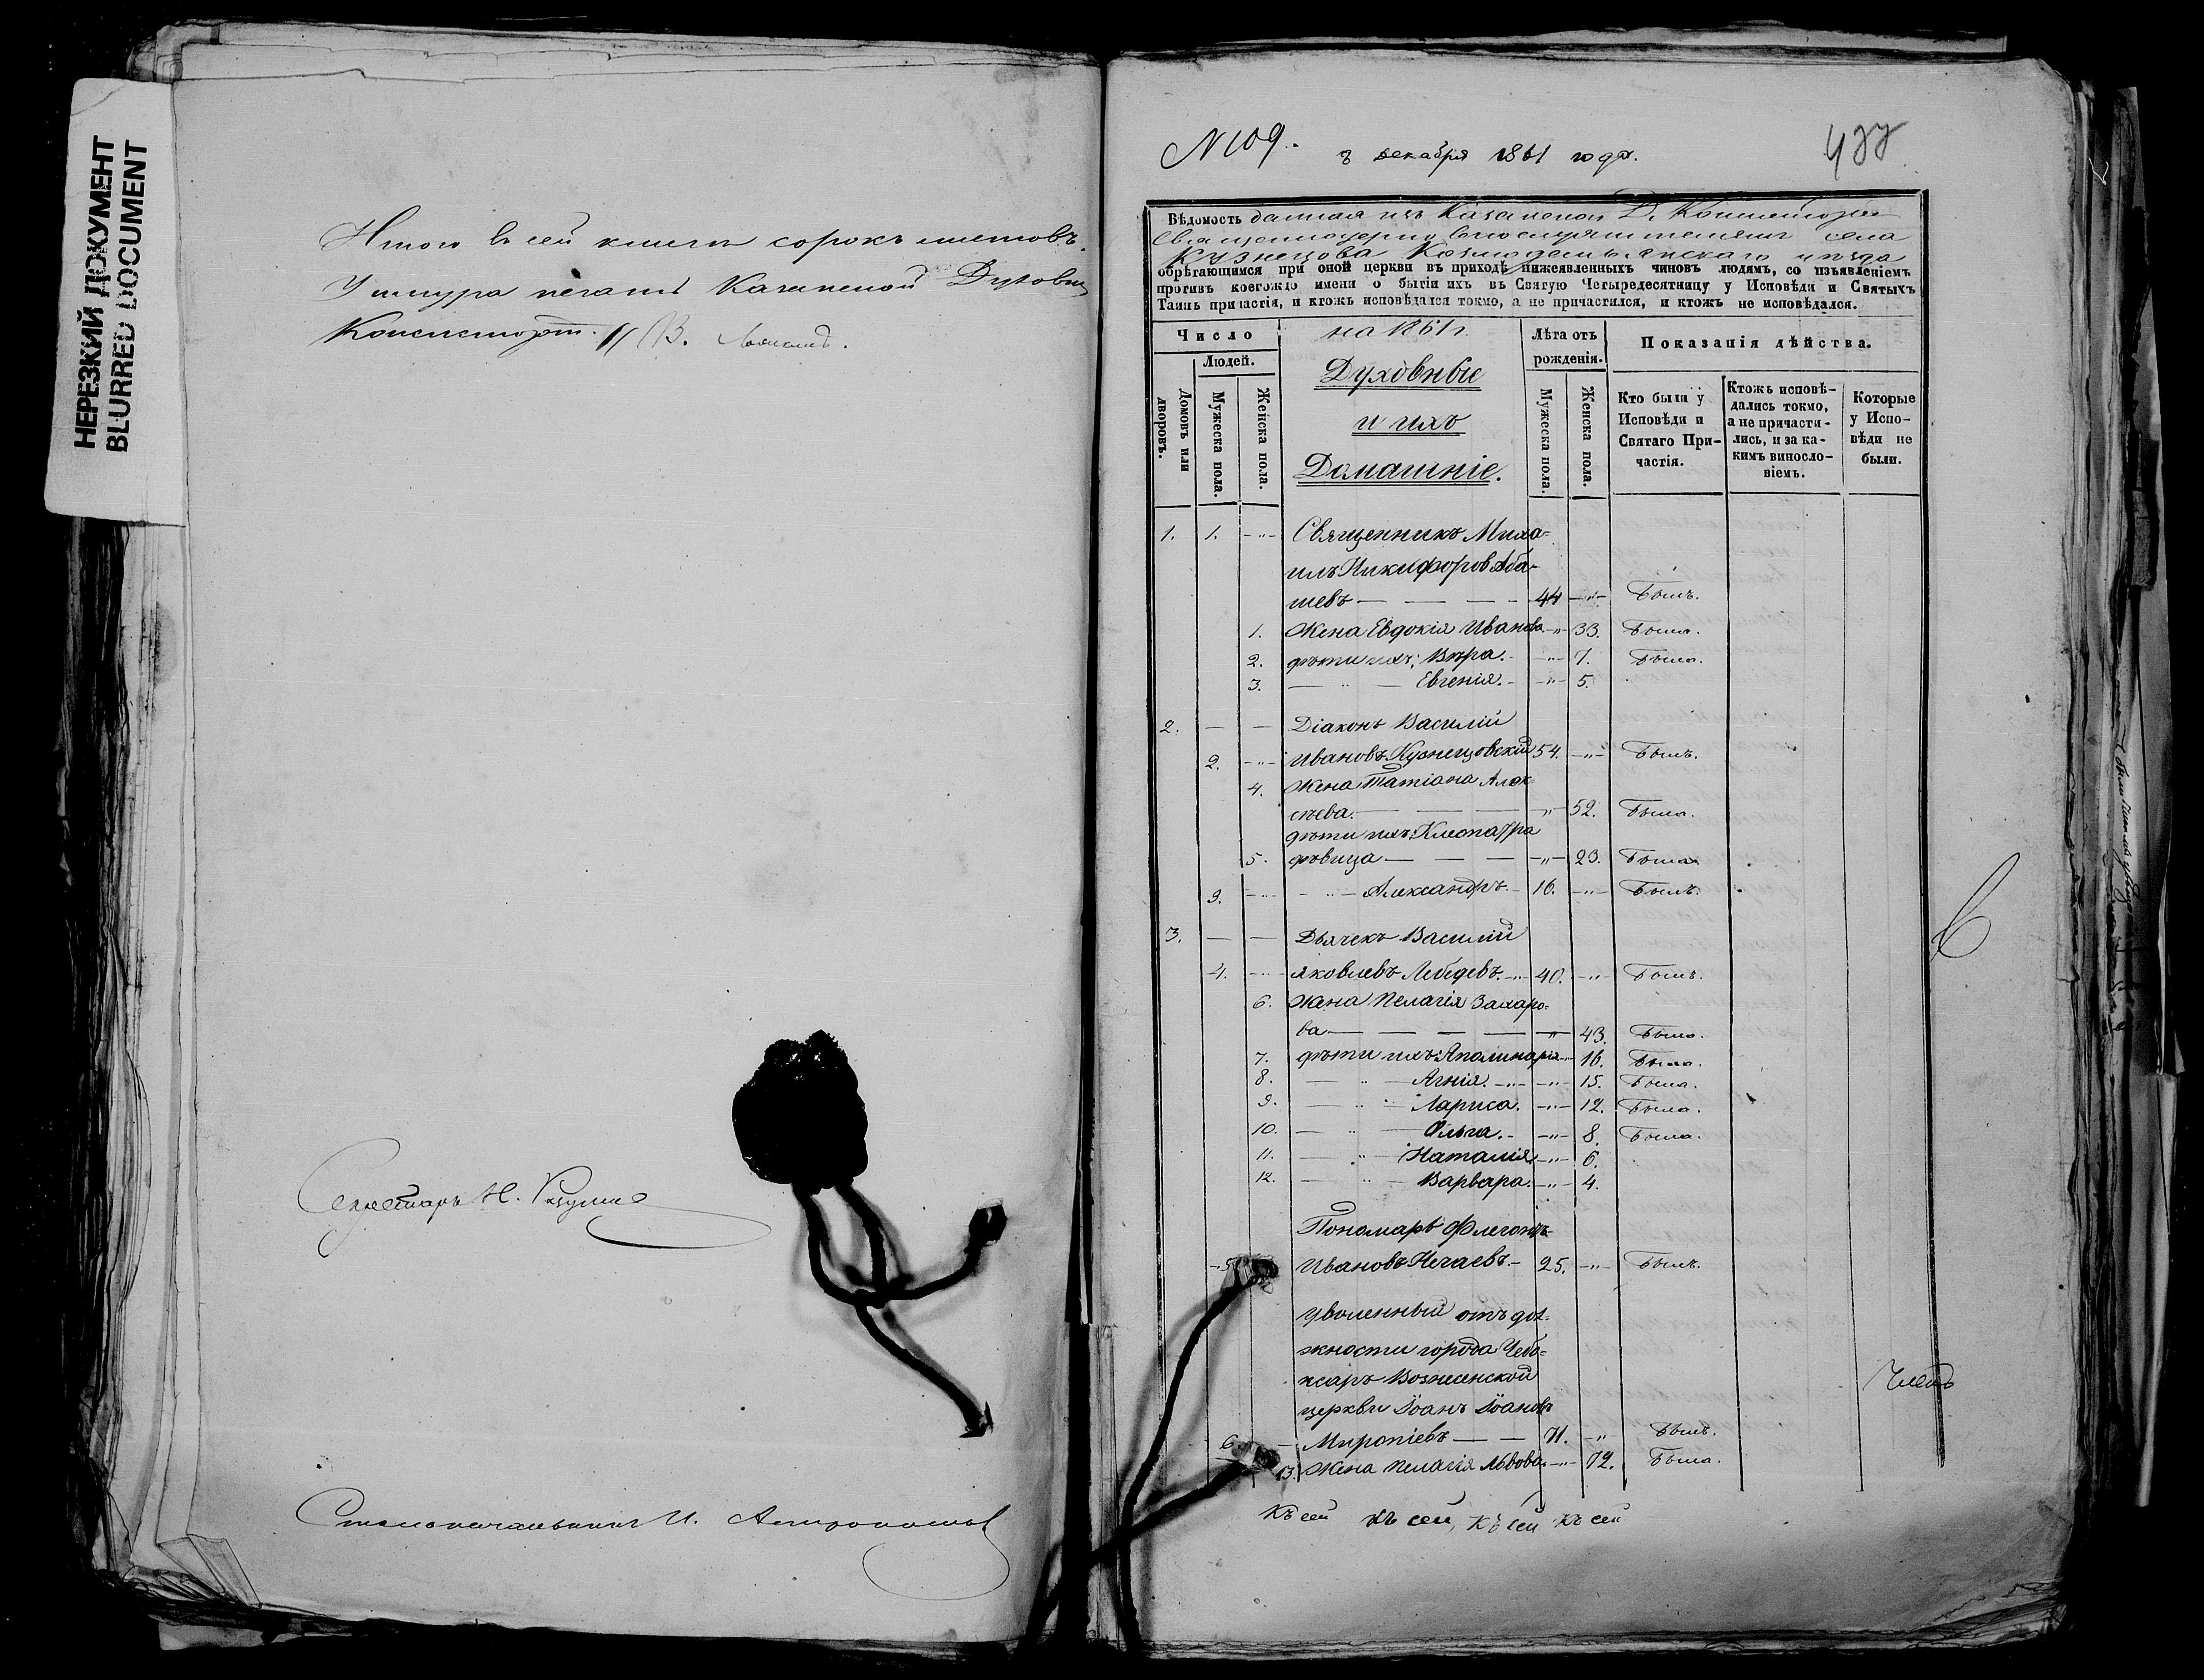 НЕРЕЗКИЙ ДОКУМЕНТ
BLURRED DOCUMENT
Итого въ сей книгѣ сорокъ листовъ.
У шнура печать Казанской Духовн
Консисторіи.
Секретарь Н.
Столоначальникъ И.
N 109.
3 декабря 1861 года.
477
Вѣдомость данная изъ Казанской Д. Консисторіи
Священноцерковнослужителямъ села
Кузнецова Козмодемьянскаго уѣзда
обрѣтающимся при оной церкви въ приходѣ нижеявленныхъ чиновъ людямъ, со изъявленіемъ
противъ коегождо имени о бытіи ихъ въ Святую Четыредесятницу у Исповѣди и Святыхъ
Таинъ причастія, и ктожъ исповѣдался токмо, а не причастился, и ктожъ не исповѣдался.
Число
Людей.
Домовъ или дворовъ.
Мужеска пола.
Женска пола.
на 1861 г.
Духовные
и ихъ
Домашніе.
Лѣта отъ рожденія.
Мужеска пола.
Женска пола.
Показанія дѣйства.
Кто были у Исповѣди и Святаго При-частія.
Ктожъ исповѣ-дались токмо, а не причасти-лись, и за ка-кимъ винословіемъ.
Которые у Испо-вѣди не были.
1. 1. -"- Священникъ Миха=
илъ Никифоровъ Аба-
шевъ — — — 44 -"- Былъ.
1. Жена Евдокія Иванова -"- 33. Была.
2. дѣти ихъ: Вѣра. -"- 7. Была.
3. — " — Евгенія. -"- 5.
2. — — Діаконъ Василій
2. -"- Ивановъ Кузнецовскій 54. -"- Былъ.
4. Жена Татіана Алек-
сѣева. — — — " 52. Была.
дѣти ихъ: Клеопатра
5. дѣвица — — — -"- 23. Была
3. -"- - " — Александръ. 16. -"- Былъ.
3. — — Дьячекъ Василій
4. -"- Яковлевъ Лебедевъ. -"- 40. -"- Былъ.
6. Жена Пелагія Захаро-
ва — — — — " 43. Была.
7. дѣти ихъ: Аполинарія -"- 16. Была.
8. — " — Агнія. -"- -"- 15. Была.
9. — " — Лариса. -"- 12. Была.
10. — " — Ольга. -"- 8. Была.
11. — " — Наталія -"- 6.
12. — " — Варвара. -"- 4.
Пономарь Флегонтъ
5. Ивановъ Нечаевъ. 25. -"- Былъ.
Уволенный отъ дол-
жности города Чебо=
ксаръ Вознесенской
церкви Іоанъ Іоановъ
6. Миропіевъ — — 71. -"- Былъ.
13. Жена Пелагія Львова -"- 72. Была.
Къ сей къ сей, къ сей къ сей